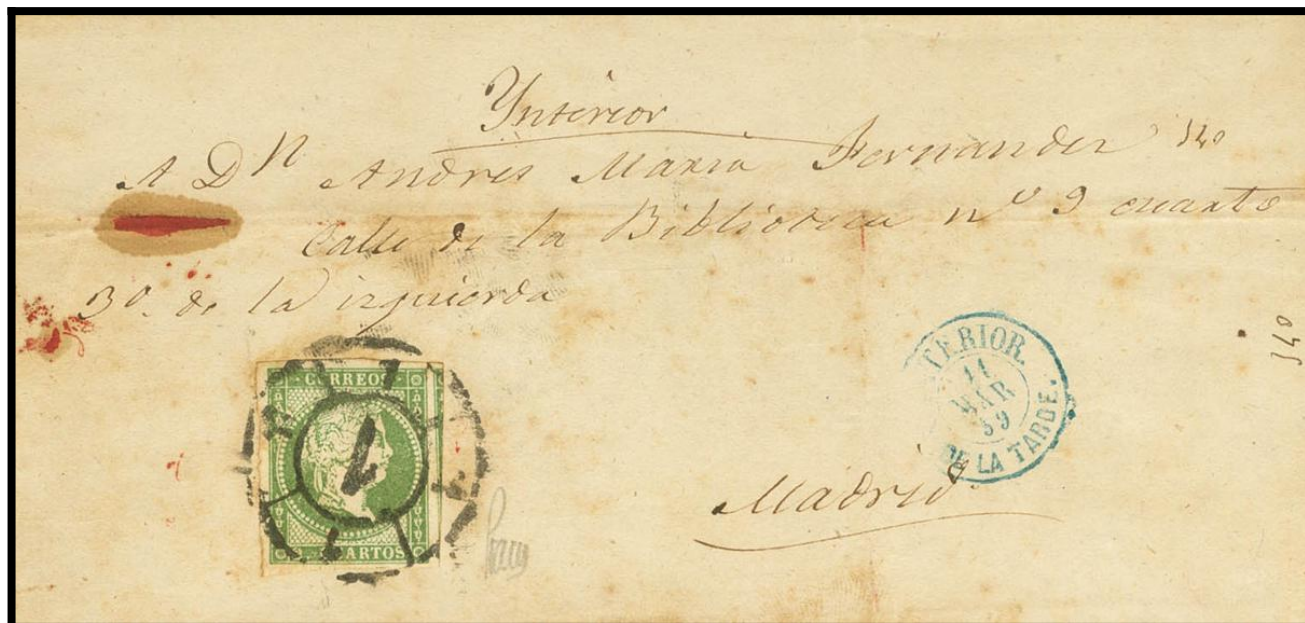 Ynterior
A Dn Andres Maria Fernandez
Calle de la Biblioteca nº 9 cuarto
3º. de la izquierda
CORREOS
CUARTOS
1
TERIOR.
11
MAR
59
DE LA TARDE.
Madrid